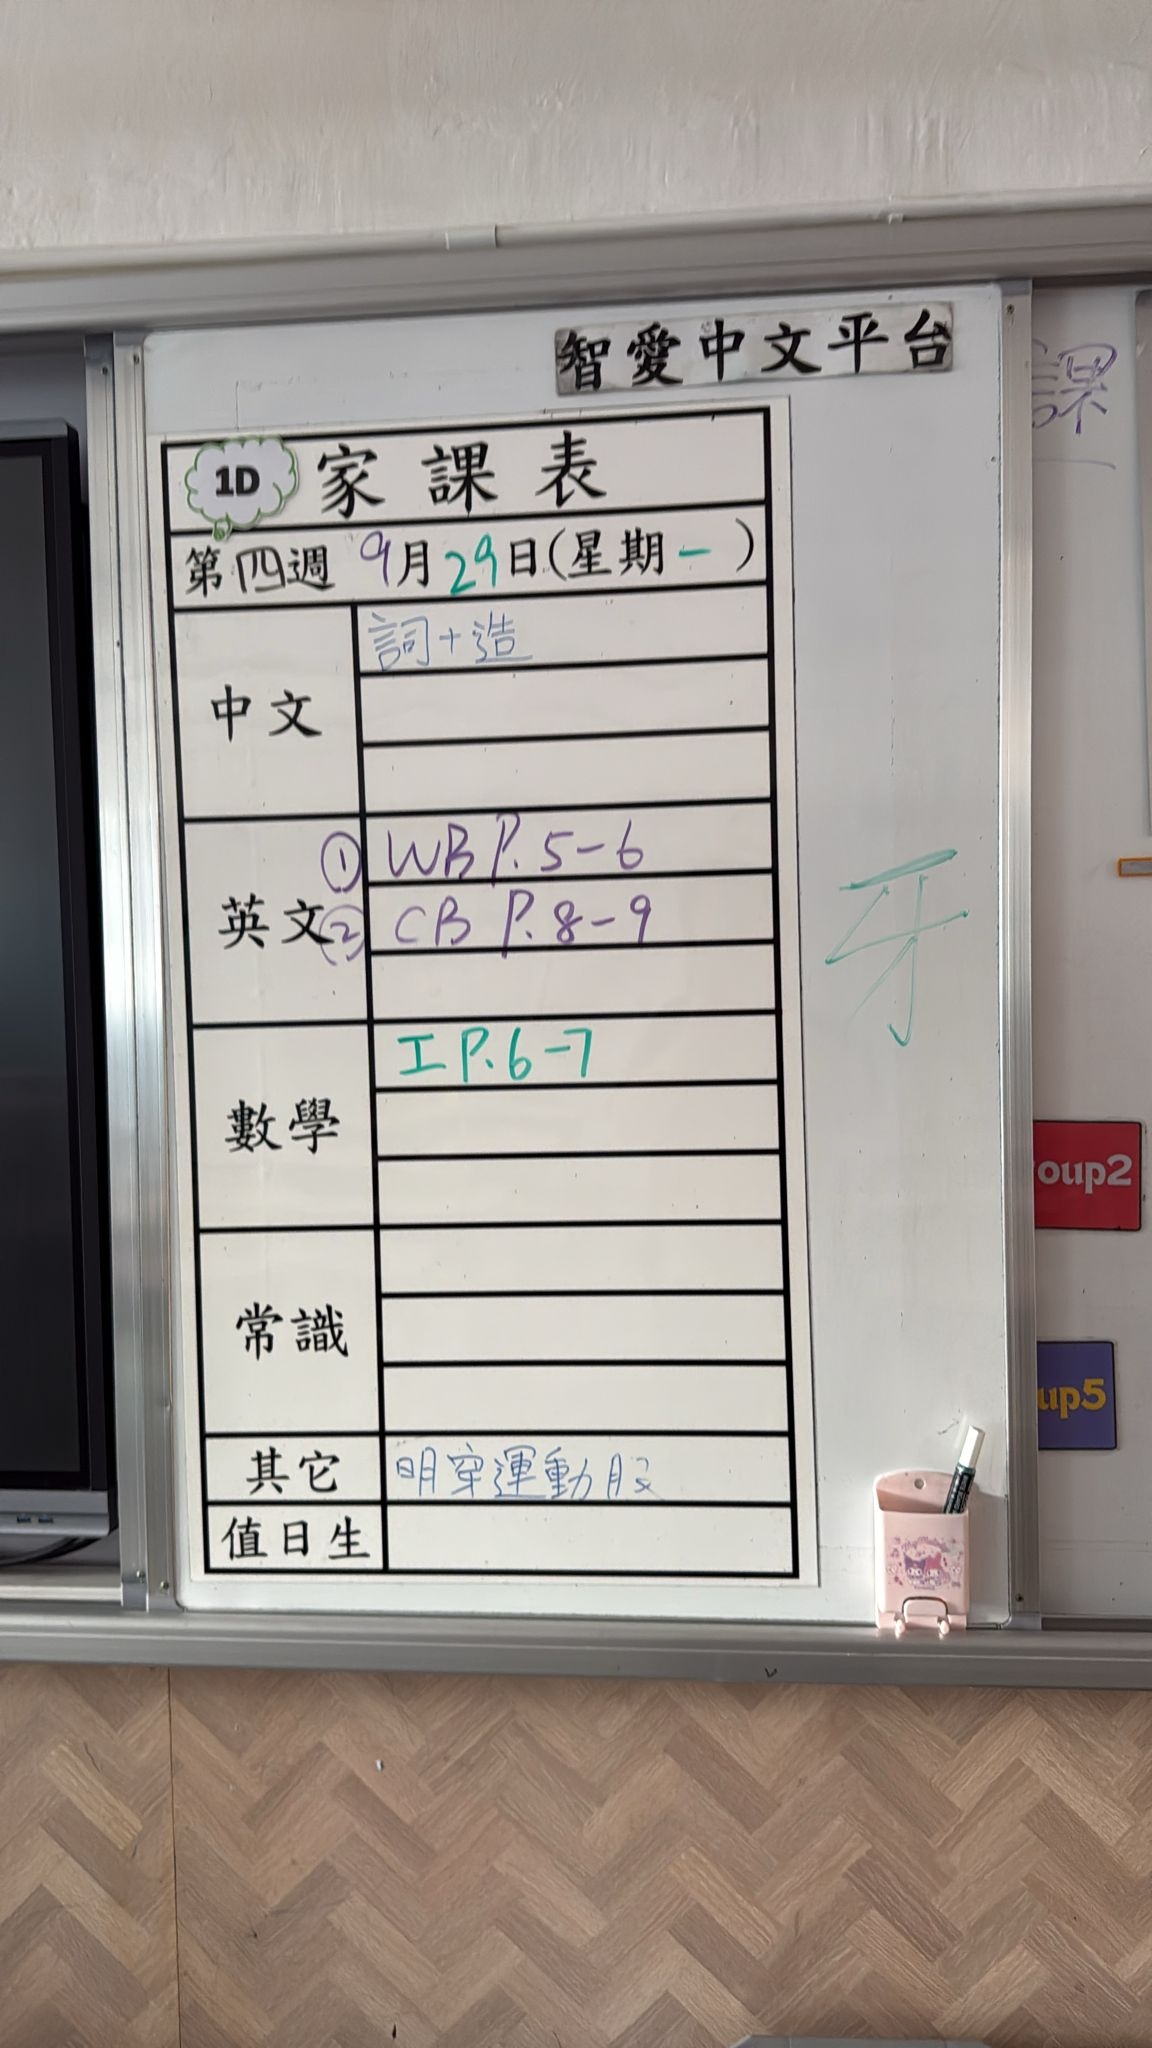 智愛中文平台
課
1D 家課表
第四週 9月29日(星期一)
中文
詞+造
英文
① WB P.5-6
② CB P.8-9
數學
工 P.6-7
常識
其它
明穿運動服
值日生
牙
oup2
up5